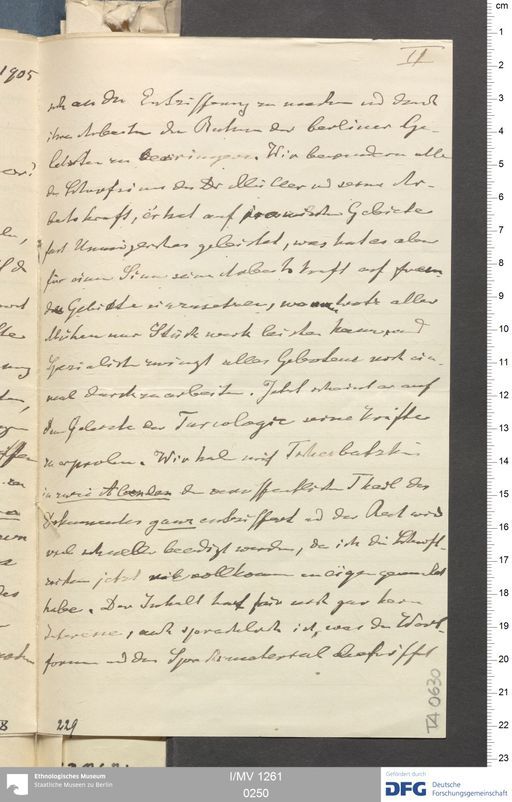 II
1905
sich an die Entzifferung zu machen und durch
ihre Arbeiten den Ruhm der berliner Ge-
lehrten zu verringern. Wir bewundern alle
den Scharfsinn des Dr Müller und seine Ar-
beitskraft, er hat auf iranischen Gebiete
fast Unmögliches geleistet, was hat es aber
für einen Sinn seine Arbeitskraft auf frem-
de Gebiete einzusetzen, wo er trotz aller
Mühen nur Stückwerk leisten kann, und
Specialisten zwingt alles Gebotene noch ein-
mal durchzuarbeiten. Jetzt scheint er auf
dem Gebiete der Turcologie seine Kräfte
zu erproben. Wir haben mit
in zwei Abenden den veröffentlichten Theil des
Dokumentes ganz entziffert und der Rest wird
viel schneller beendigt werden, da ich die Schrift-
zeichen jetzt mir vollkommen zu eigen gemacht
habe. Der Inhalt hat für mich gar kein
Interesse, auch sprachlich ist, was die Wort-
formen und das Sprachmaterial betrifft
229
IA 0630
cm
1
2
3
4
5
6
7
8
9
10
11
12
13
14
15
16
17
18
19
20
21
22
23
Ethnologisches Museum
Staatliche Museen zu Berlin
I/MV 1261
0250
Gefördert durch
DFG Deutsche
Forschungsgemeinschaft